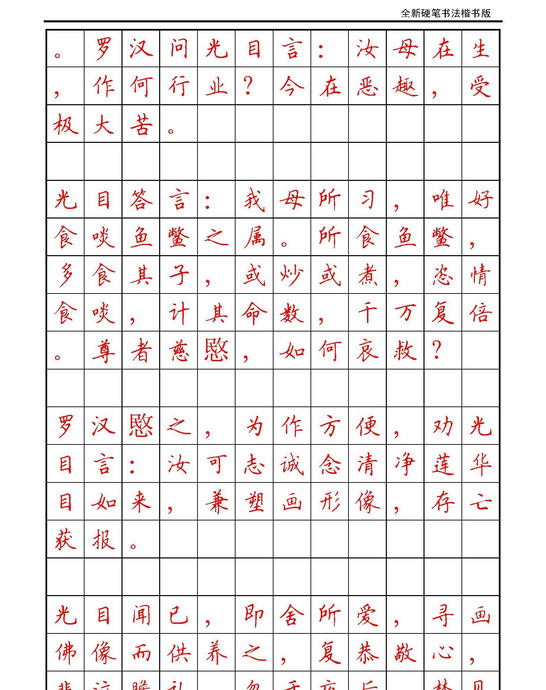 全新硬笔书法楷书版
。罗汉问光目言：汝母在生
，作何行业？今在恶趣，受
极大苦。
光目答言：我母所习，唯好
食啖鱼鳖之属。所食鱼鳖，
多食其子，或炒或煮，恣情
食啖，计其命数，千万复倍
。尊者慈愍，如何哀救？
罗汉愍之，为作方便，劝光
目言：汝可志诚念清净莲华
目如来，兼塑画形像，存亡
获报。
光目闻已，即舍所爱，寻画
佛像而供养之，复恭敬心，
悲泣瞻礼。忽于夜后，梦见